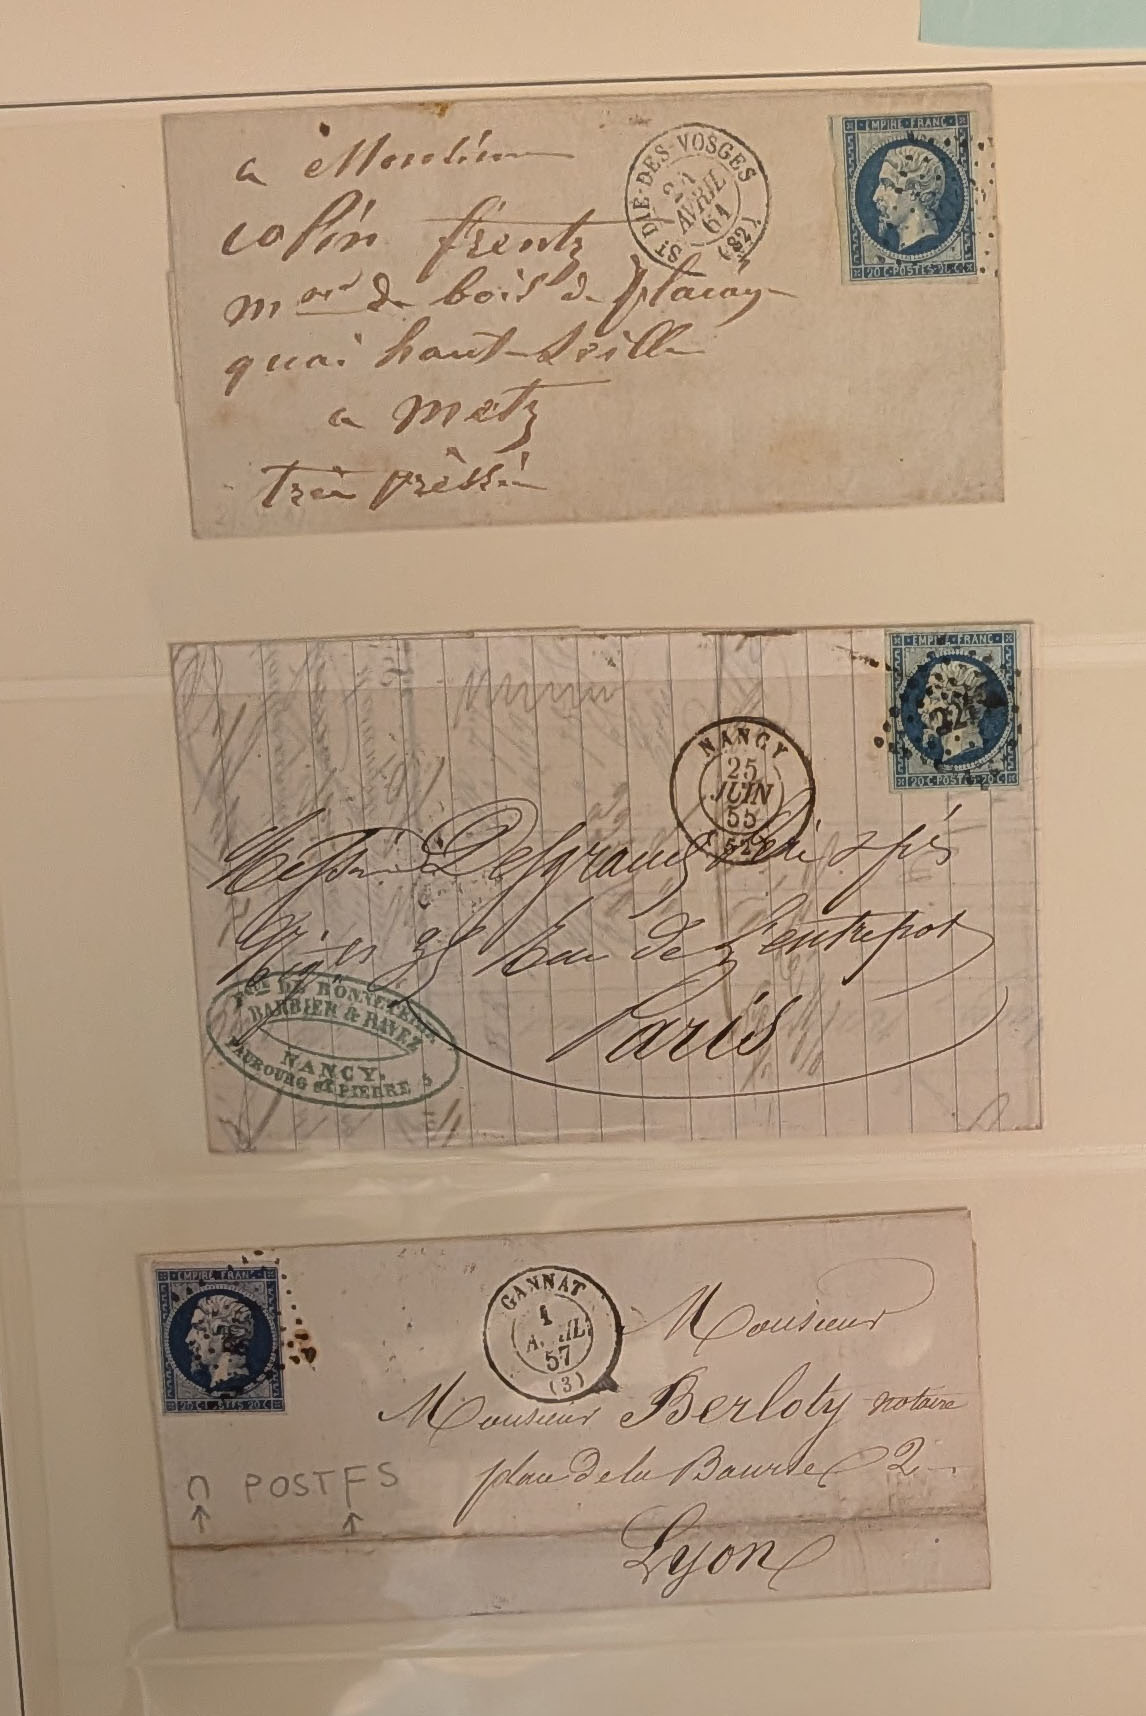 a Monsieur
colin frentz
md de bois de placage
quai haut-Seille
a Metz
très préssé
ST DIÉ-DES-VOSGES
24
AVRIL
61
(82)
EMPIRE FRANC
20 C POSTES 20 C
NANCY
25
JUIN
55
(52)
EMPIRE FRANC
20 C POSTES 20 C
Desgrand
Rue de l'entrepot
Paris
DE BONNETERIE
BARBIER & RAVEZ
NANCY.
FAUBOURG ST PIERRE 5
EMPIRE FRANC
POSTFS 20 C
GANNAT
1
AVRIL
57
(3)
Monsieur
Monsieur Berloty notaire
place de la Bourse 2
Lyon
POSTFS